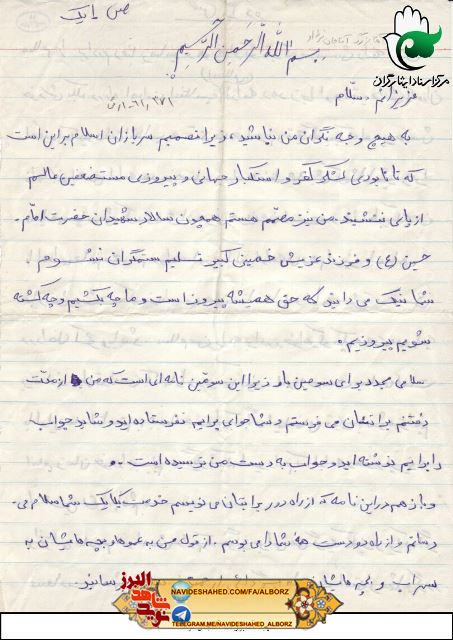 ص یک
بسم الله الرحمن الرحیم
مرکز اسناد ایثارگران
عزیزانم سلام
به هیچ وجه نگران من نباشید، زیرا تصمیم سربازان اسلام بر این است
که تا نابودی لشکر کفر و استکبار جهانی و پیروزی مستضعفین عالم
از پای ننشینند. من نیز مصمم هستم همچون سالار شهیدان حضرت امام
حسین (ع) و فرزند عزیزش خمینی کبیر تسلیم ستمگران نشوم.
شما نیک می دانید که حق همیشه پیروز است و ما چه بکشیم و چه کشته
شویم پیروزیم.
سلامی مجدد برای سومین بار زیرا این سومین نامه ای است که من از مدت
رفتنم برایتان می فرستم و شما جوابی برایم نفرستاده اید و شاید جواب
را برایم نوشته اید و جواب به دست من نرسیده است. و
و باز هم در این نامه که از راه دور برایتان می نویسم خدمت یکایک شما سلام می
رسانم و از راه دور دست همه شما را می بوسم. از قول من به عموها و بچه هایشان به
سهراب و بچه هایش
نوید شاهد البرز
NAVIDESHAHED.COM/FA/ALBORZ
TELEGRAM.ME/NAVIDESHAHED_ALBORZ